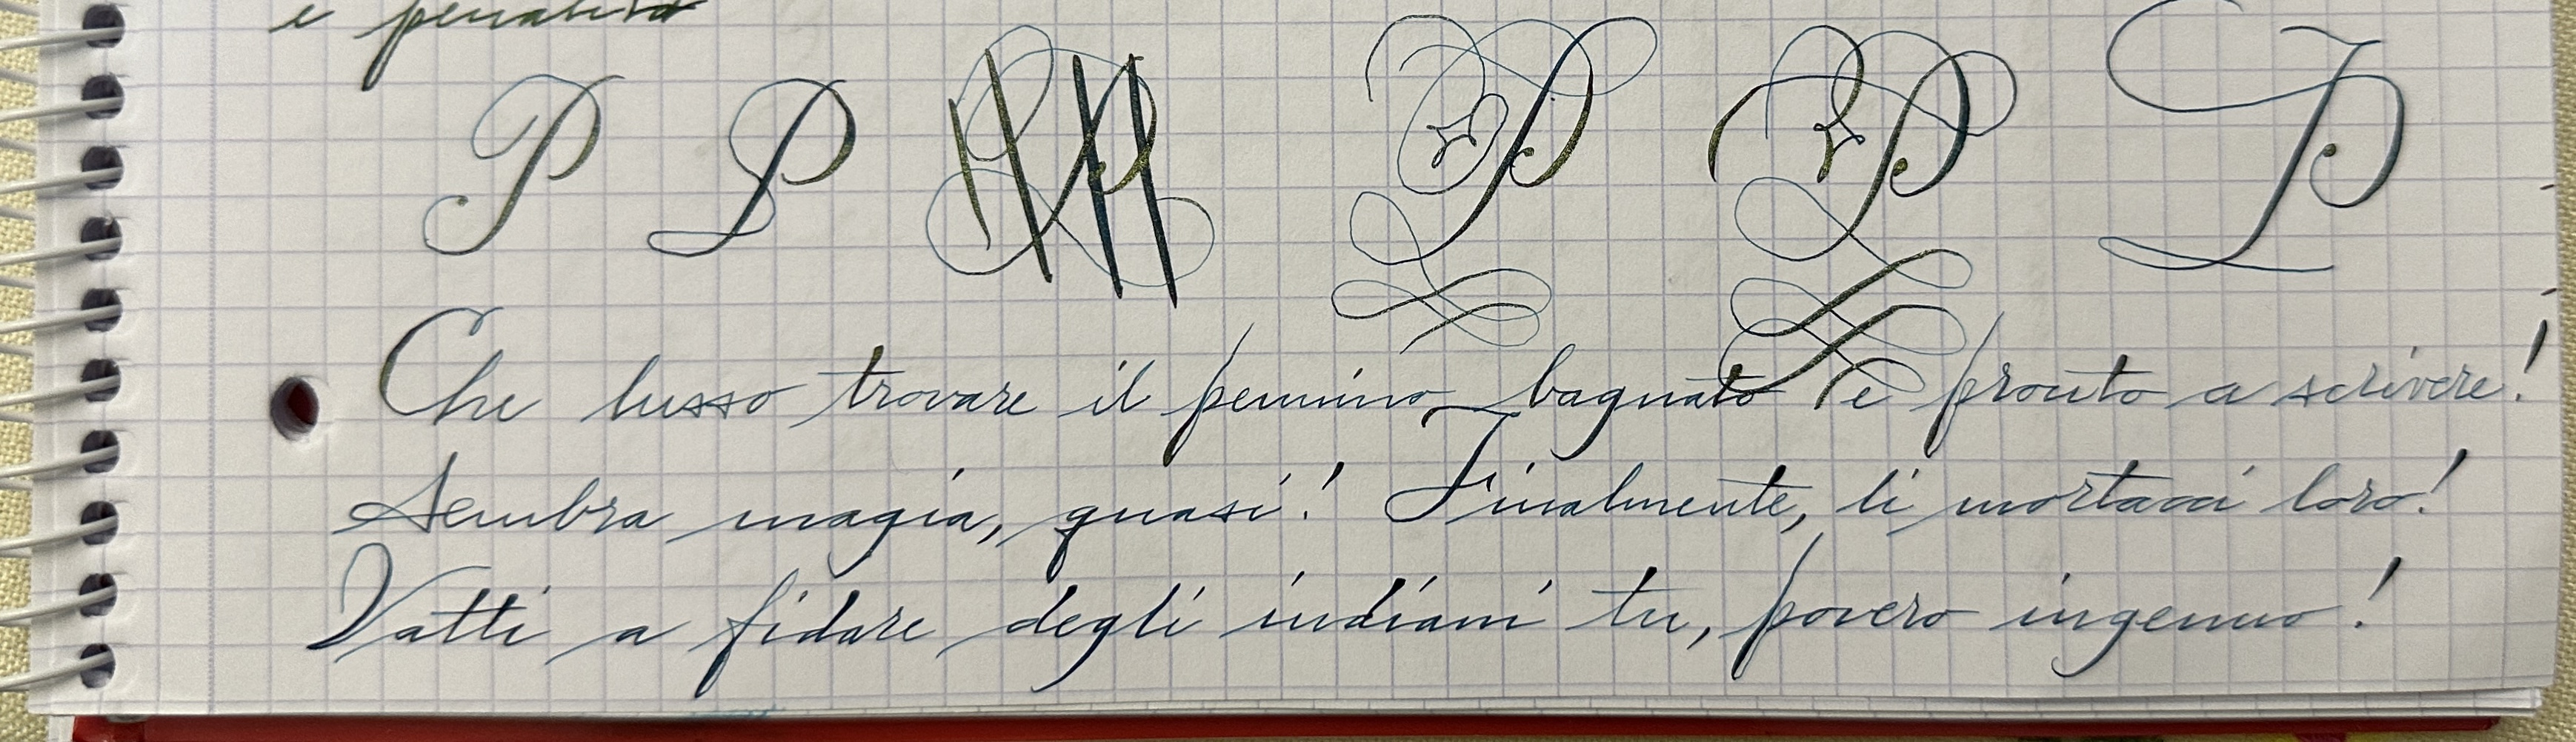 e
P P P P P P
Che lusso trovare il pennino bagnato e pronto a scrivere!
Sembra magia, quasi! Finalmente, li mortacci loro!
Vatti a fidare degli indiani tu, povero ingenuo!